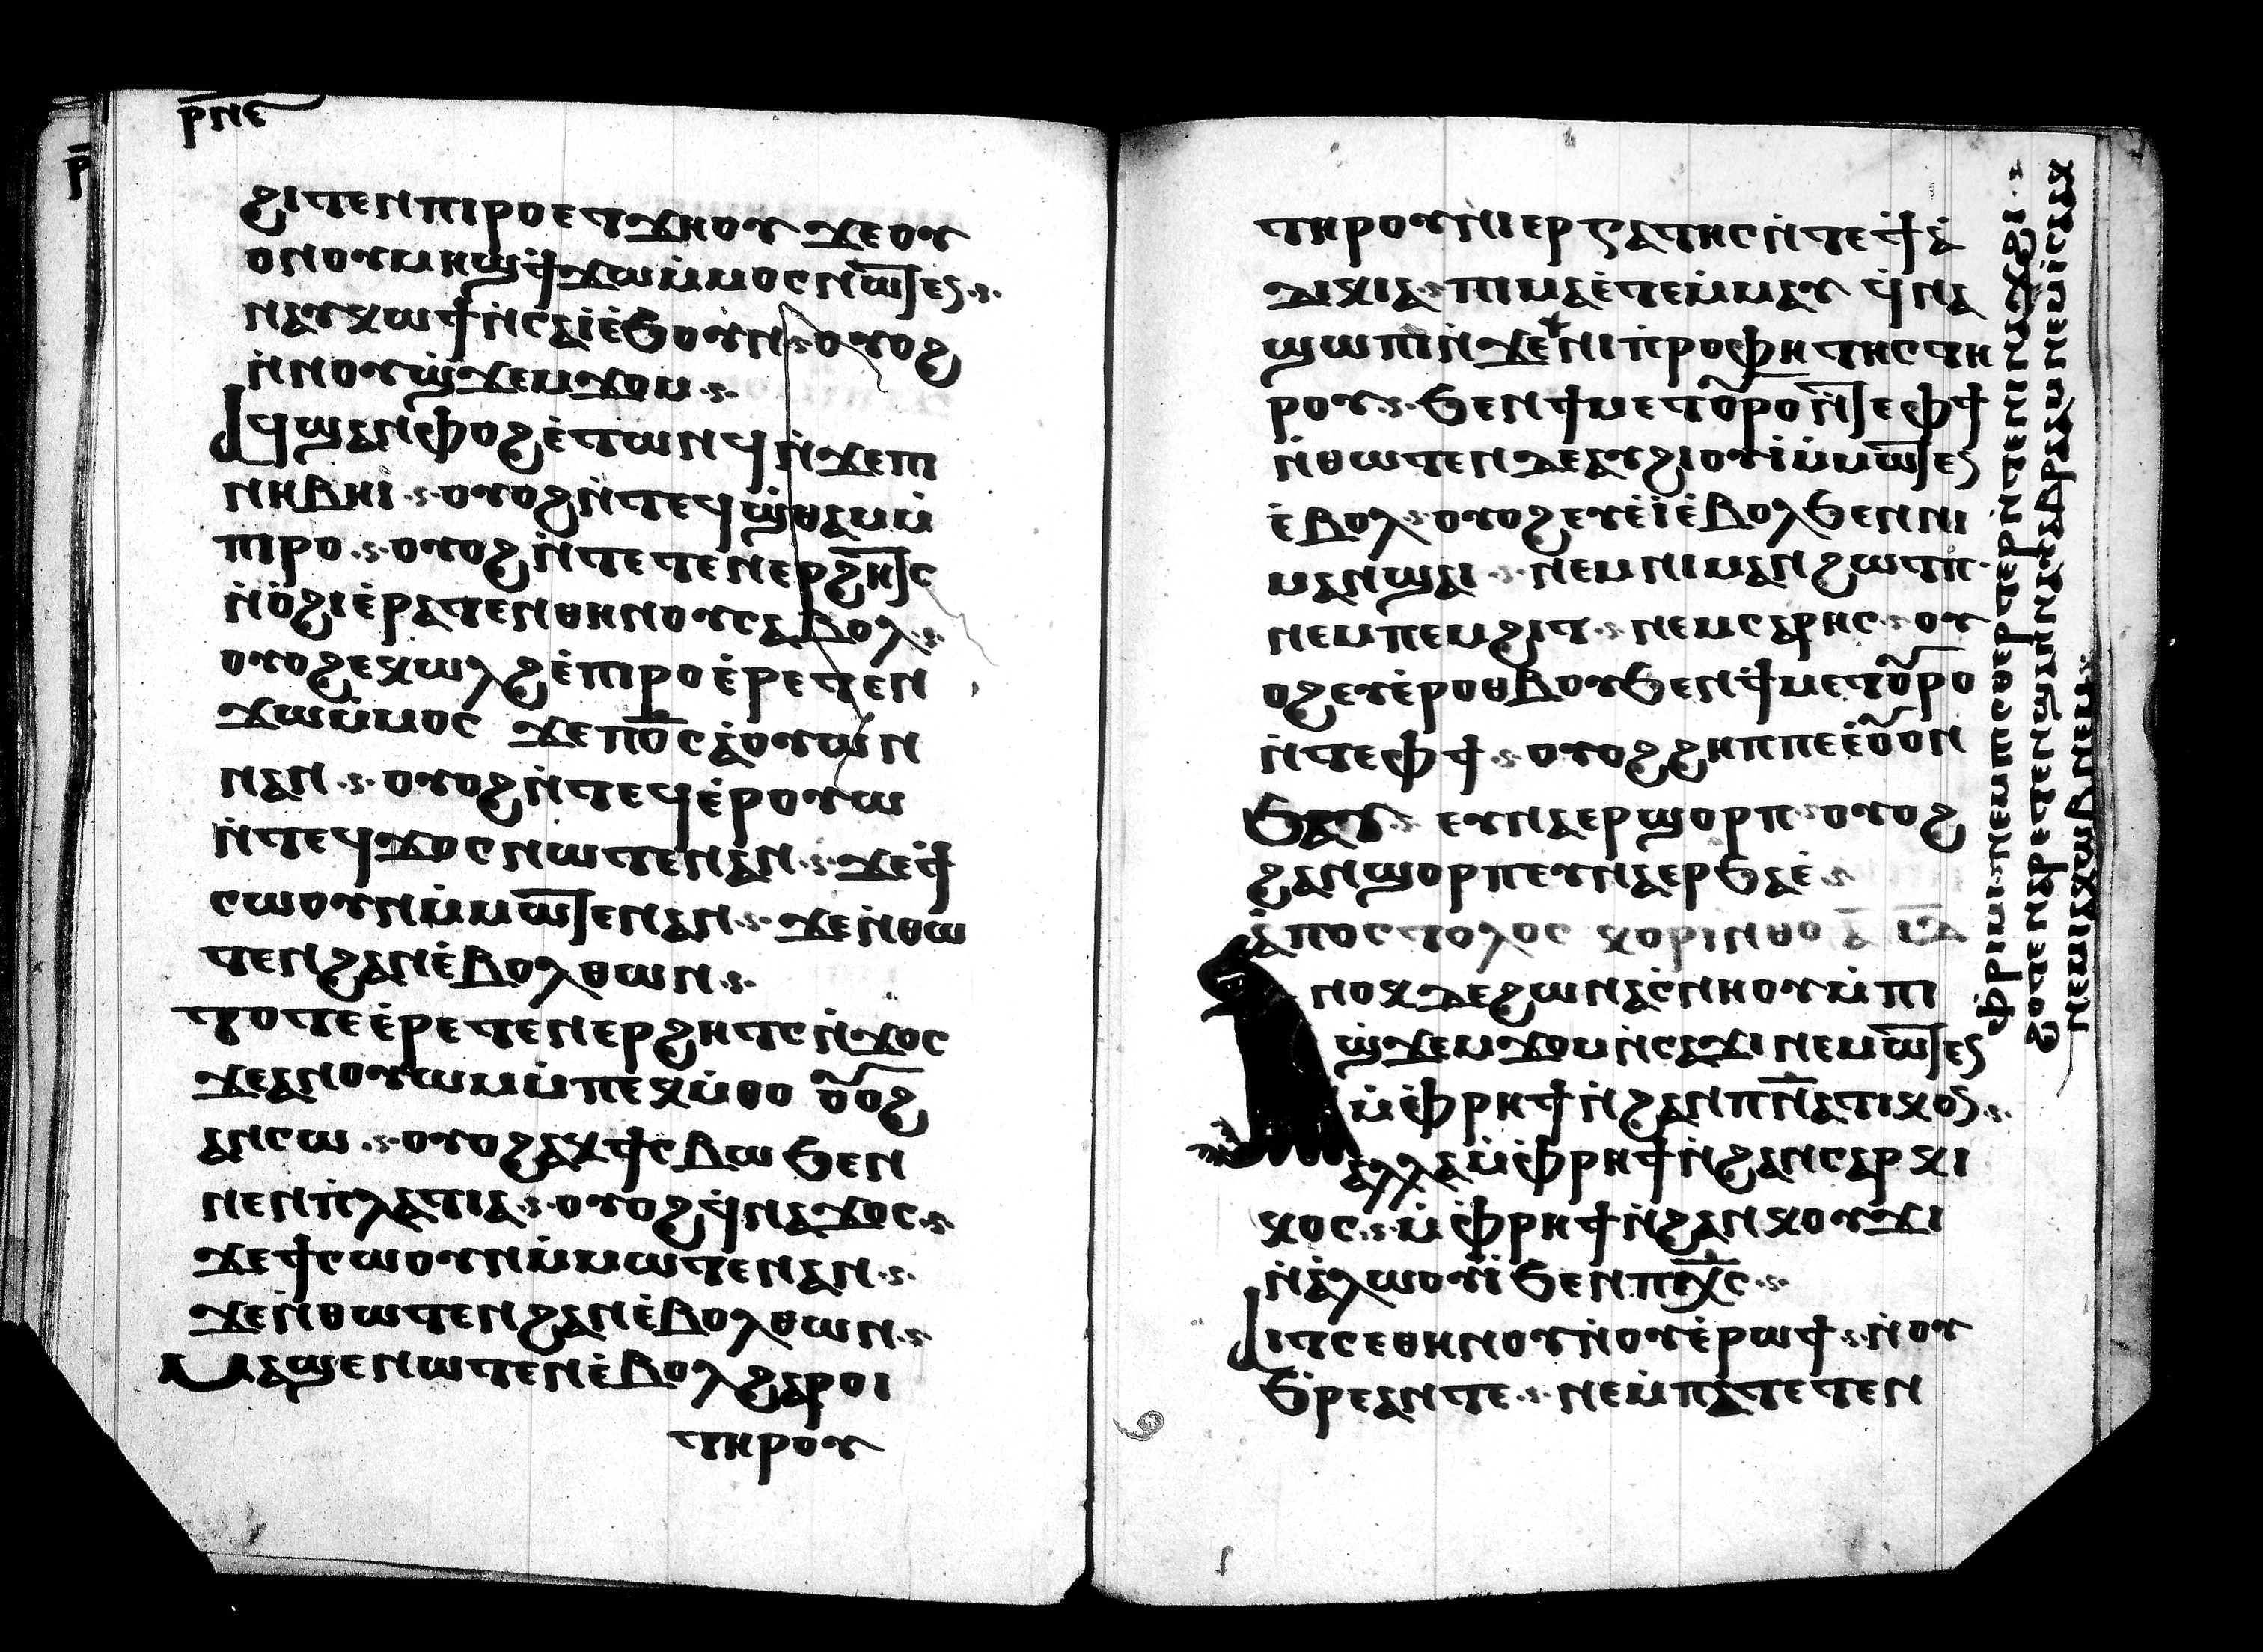 ⲣ̅ⲛⲉ
ϩⲓⲧⲉⲛⲡⲓⲣⲟⲉⲧϫⲏⲟⲩ ϫⲉⲟⲩ
ⲟⲛⲟⲩⲙⲏϣϯϫⲱⲙ̀ⲙⲟⲥⲛⲱ̅ⲧⲉⲛ·
ⲛⲁⲩⲕⲱϯⲛ̀ⲥⲁⲓ̀ⲉ̀ϧⲟⲩⲛ·ⲟⲩⲟϩ
ⲛ̀ⲛⲟⲩϣ̀ϫⲉⲙϫⲟⲙ·
ⲁϥϣⲁⲛⲫⲟϩⲉ̀ⲧⲱⲛϥⲛ̀ϫⲉⲡ
ⲛⲏⲃⲏⲓ·ⲟⲩⲟϩⲛ̀ⲧⲉϥϣ̀ⲑⲁⲙⲙ̀
ⲡⲓⲣⲟ·ⲟⲩⲟϩⲛ̀ⲧⲉⲧⲉⲛⲉⲣϩⲏⲧⲥ
ⲛ̀ⲟ̀ϩⲓⲉ̀ⲣⲁⲧⲉⲛⲑⲏⲛⲟⲩⲥⲁⲃⲟⲗ·
ⲟⲩⲟϩⲉⲕⲱⲗϩⲉ̀ⲡⲓⲣⲟⲉ̀ⲣⲉⲧⲉⲛ
ϫⲱⲙ̀ⲙⲟⲥ ϫⲉⲡⲟ̅ⲥⲁ̀ⲟⲩⲱⲛ
ⲛⲁⲛ·ⲟⲩⲟϩⲛ̀ⲧⲉϥⲉ̀ⲣⲟⲩⲱ
ⲛ̀ⲧⲉϥϫⲟⲥⲛⲱⲧⲉⲛⲁⲛ·ϫⲉϯ
ⲥⲱⲟⲩⲛⲙ̀ⲙⲱ̅ⲧⲉⲛⲁⲛ·ϫⲉⲛ̀ⲑⲱ
ⲧⲉⲛϩⲁⲛⲉ̀ⲃⲟⲗⲑⲱⲛ·
ⲧⲟⲧⲉⲉ̀ⲣⲉⲧⲉⲛⲉⲣϩⲏⲧⲥⲛ̀ϫⲟⲥ
ϫⲉⲁⲛⲟⲩⲱⲙⲙ̀ⲡⲉⲕⲙ̀ⲑⲟ ⲟⲩⲟϩ
ⲁⲛⲥⲱ·ⲟⲩⲟϩⲁⲕϯⲥⲃⲱϧⲉⲛ
ⲛⲉⲛⲡ̀ⲗⲁⲧⲓⲁ·ⲟⲩⲟϩϥ̀ⲛⲁϫⲟⲥ·
ϫⲉϯⲥⲱⲟⲩⲛⲙ̀ⲙⲱⲧⲉⲛⲁⲛ·
ϫⲉⲛ̀ⲑⲱⲧⲉⲛϩⲁⲛⲉ̀ⲃⲟⲗⲑⲱⲛ·
ⲙⲁϣⲉⲛⲱⲧⲉⲛⲉ̀ⲃⲟⲗϩⲁⲣⲟⲓ
ⲧⲏⲣⲟⲩ
ⲧⲏⲣⲟⲩⲛⲓⲉⲣⲅⲁⲧⲏⲥⲛ̀ⲧⲉϯⲁ̀
ⲇⲓⲕⲓⲁ·ⲡⲓⲙⲁⲉ̀ⲧⲉⲙ̀ⲙⲁⲩ ϥ̀ⲛⲁ
ϣⲱⲡⲓⲛ̀ϫⲉⲛⲓⲡ̀ⲣⲟⲫⲏⲧⲏⲥⲧⲏ
ⲣⲟⲩ·ϧⲉⲛϯⲙⲉⲧⲟⲩⲣⲟⲛ̅ⲧⲉⲫϯ
ⲛ̀ⲑⲱⲧⲉⲛⲇⲉⲁⲩϩⲓⲟⲩⲓ̀ⲙ̀ⲙⲱ̅ⲧⲉⲛ
ⲉ̀ⲃⲟⲗ·ⲟⲩⲟϩⲉⲩⲉ̀ⲓ̀ⲉ̀ⲃⲟⲗϧⲉⲛⲛⲓ
ⲙⲁⲛϣⲁⲓ·ⲛⲉⲙⲛⲓⲙⲁⲛϩⲱⲧⲡ·
ⲛⲉⲙⲡⲉⲙϩⲓⲧ·ⲛⲉⲙⲥⲁⲣⲏⲥ·ⲟⲩ
ⲟϩⲉⲩⲉ̀ⲣⲟⲑⲃⲟⲩϧⲉⲛϯⲙⲉⲧⲟⲩⲣⲟ
ⲛ̀ⲧⲉⲫϯ·ⲟⲩⲟϩϩⲏⲡⲡⲉⲓ̀ⲟⲩⲟⲛ
ϧⲁⲉⲩ· ⲉⲩⲛⲁⲉⲣϣⲟⲣⲡ·ⲟⲩⲟϩ
ϩⲁⲛϣⲟⲣⲡⲉⲩⲛⲁⲉⲣϧⲁⲉ̀·
ⲁ̀ⲡⲟⲥⲧⲟⲗⲟⲥ ⲕⲟⲣⲓⲛⲑⲟ ⲁ̅ ⲓ̅ⲇ̅
ⲛⲟⲕⲇⲉϩⲱⲛⲁⲥ̀ⲛⲏⲟⲩⲙ̀ⲡⲓ
ϣ̀ϫⲉⲙϫⲟⲙⲛ̀ⲥⲁϫⲓⲛⲉⲙⲱ̅ⲧⲉⲛ
ⲙ̀ⲫ̀ⲣⲏϯⲛ̀ϩⲁⲛⲡⲛ̅ⲁⲧⲓⲕⲟⲥ·
ⲁⲗⲗⲁⲙ̀ⲫ̀ⲣⲏϯⲛ̀ϩⲁⲛⲥⲁⲣⲕⲓ
ⲕⲟⲥ·ⲙ̀ⲫ̀ⲣⲏϯⲛ̀ϩⲁⲛⲕⲟⲩϫⲓ
ⲛ̀ⲁ̀ⲗⲱⲟⲩⲓ̀ϧⲉⲛⲡⲭ̅ⲥ·
ⲁⲓⲧⲥⲉⲑⲏⲛⲟⲩⲛ̀ⲟⲩⲉ̀ⲣⲱϯ·ⲛ̀ⲟⲩ
ϧ̀ⲣⲉⲁⲛⲧⲉ·ⲛⲉⲙ̀ⲡⲁⲧⲉⲧⲉⲛ